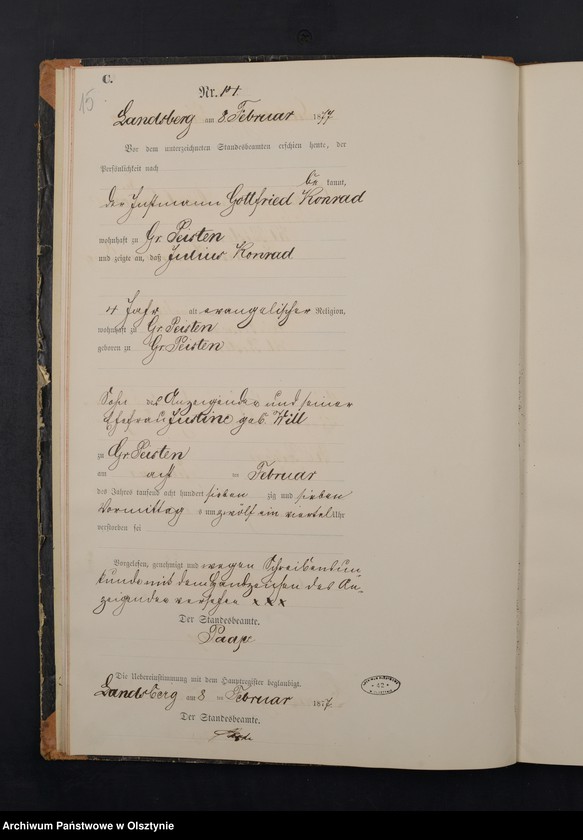 C.
15.
Nr. 14
Landsberg am 8. Februar 1877
Vor dem unterzeichneten Standesbeamten erschien heute, der
Persönlichkeit nach
be kannt,
der Instmann Gottfried Konrad
wohnhaft zu Gr. Peisten
und zeigte an, daß Julius Konrad
4 Jahr alt evangelischer Religion,
wohnhaft zu Gr. Peisten
geboren zu Gr. Peisten
Sohn des Anzeigenden und seiner
Ehefrau Justine geb. Will
zu Gr. Peisten
am acht ten Februar
des Jahres tausend acht hundert sieben zig und sieben
Vormittag s um zwölf ein viertel Uhr
verstorben sei
Vorgelesen, genehmigt und wegen Schreibensun
kunde mit dem Handzeichen des An-
zeigenden versehen x x x
Der Standesbeamte.
Paape
Die Uebereinstimmung mit dem Hauptregister beglaubigt.
Landsberg am 8 ten Februar 1877
Der Standesbeamte.
42
Archiwum Państwowe w Olsztynie